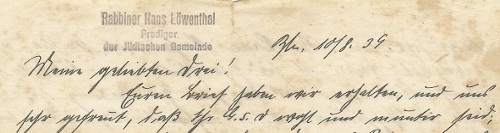 Rabbiner Hans Löwenthal
Prediger
der Jüdischen Gemeinde
Bln. 10/8. 39
Meine geliebten Drei!
Euren Brief haben wir erhalten, und uns
sehr gefreut, daß Ihr G.s.d wohl und munter seid.